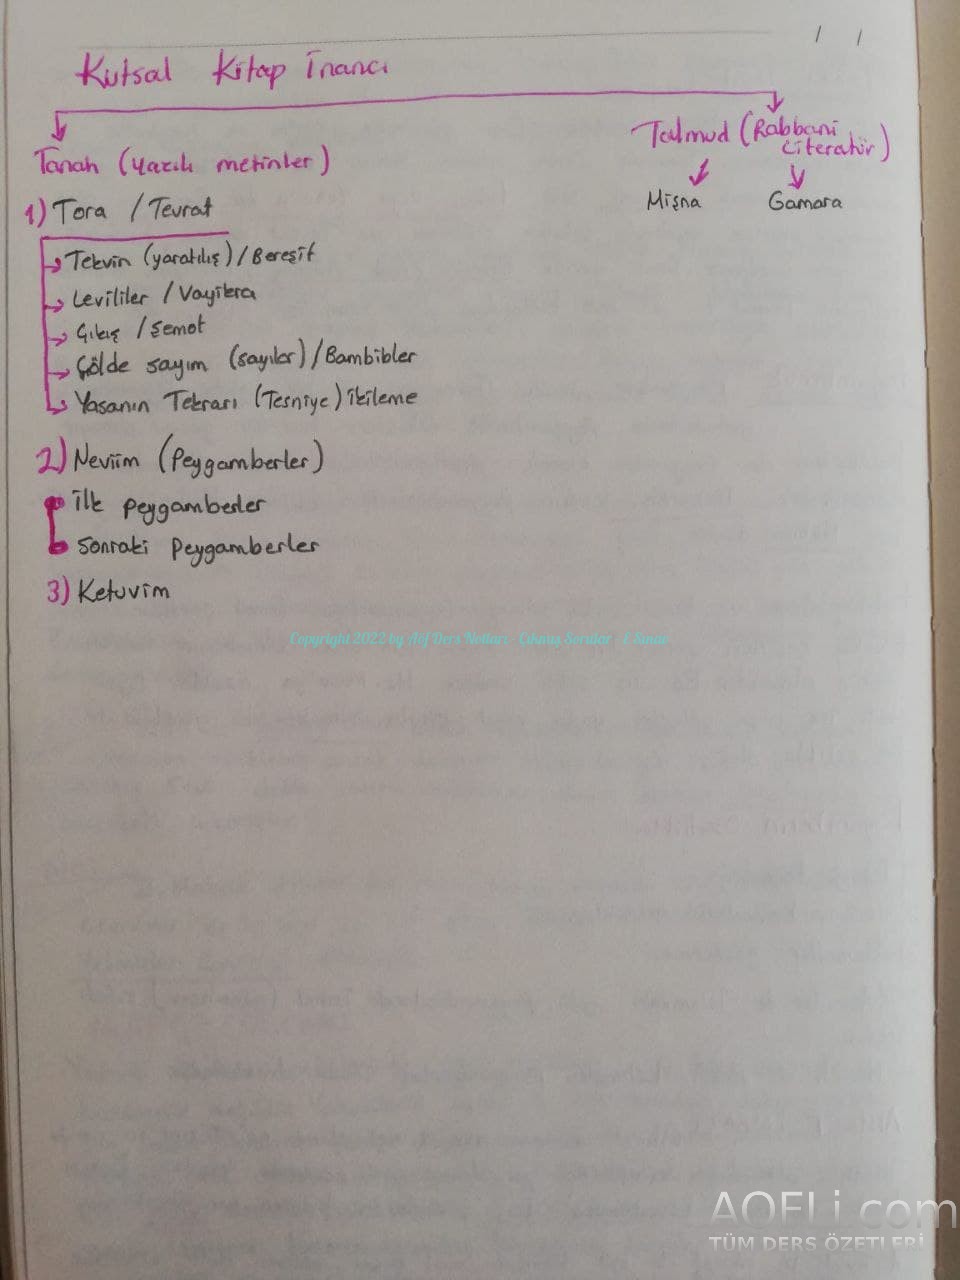 Kutsal Kitap İnancı
Tanah (yazılı metinler)
1) Tora / Tevrat
Tekvin (yaratılış) / Bereşit
Levililer / Vayikra
Çıkış / Şemot
Çölde sayım (sayılar) / Bambibler
Yasanın Tekrarı (Tesniye) ikileme
2) Neviim (Peygamberler)
ilk peygamberler
sonraki peygamberler
3) Ketuvim
Talmud (Rabbani
Literatür)
Mişna
Gamara
Copyright 2022 by Aöf Ders Notları - Çıkmış Sorular - E Sınav
AOFLi.com
TÜM DERS ÖZETLERİ